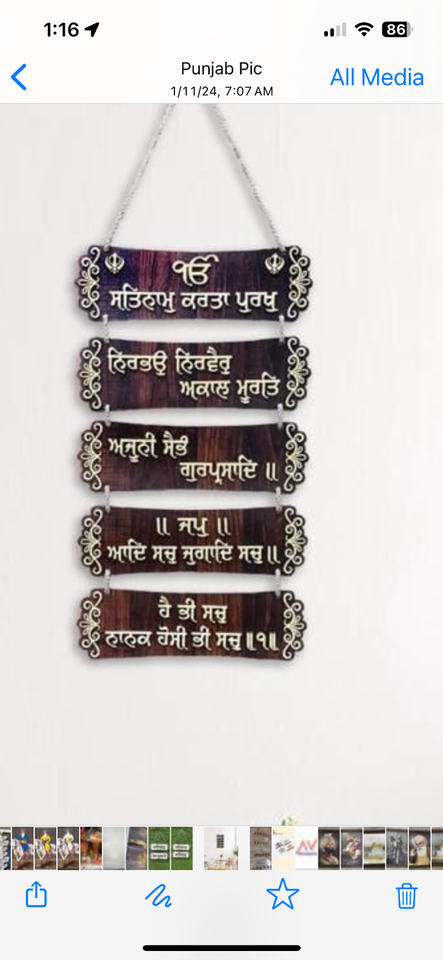 1:16
86
Punjab Pic
All Media
1/11/24, 7:07 AM
ੴ
ਸਤਿਨਾਮੁ ਕਰਤਾ ਪੁਰਖੁ
ਨਿਰਭਉ ਨਿਰਵੈਰੁ
ਅਕਾਲ ਮੂਰਤਿ
ਅਜੂਨੀ ਸੈਭੰ
ਗੁਰਪ੍ਰਸਾਦਿ ॥
॥ ਜਪੁ ॥
ਆਦਿ ਸਚੁ ਜੁਗਾਦਿ ਸਚੁ॥
ਹੈ ਭੀ ਸਚੁ
ਨਾਨਕ ਹੋਸੀ ਭੀ ਸਚੁ॥੧॥